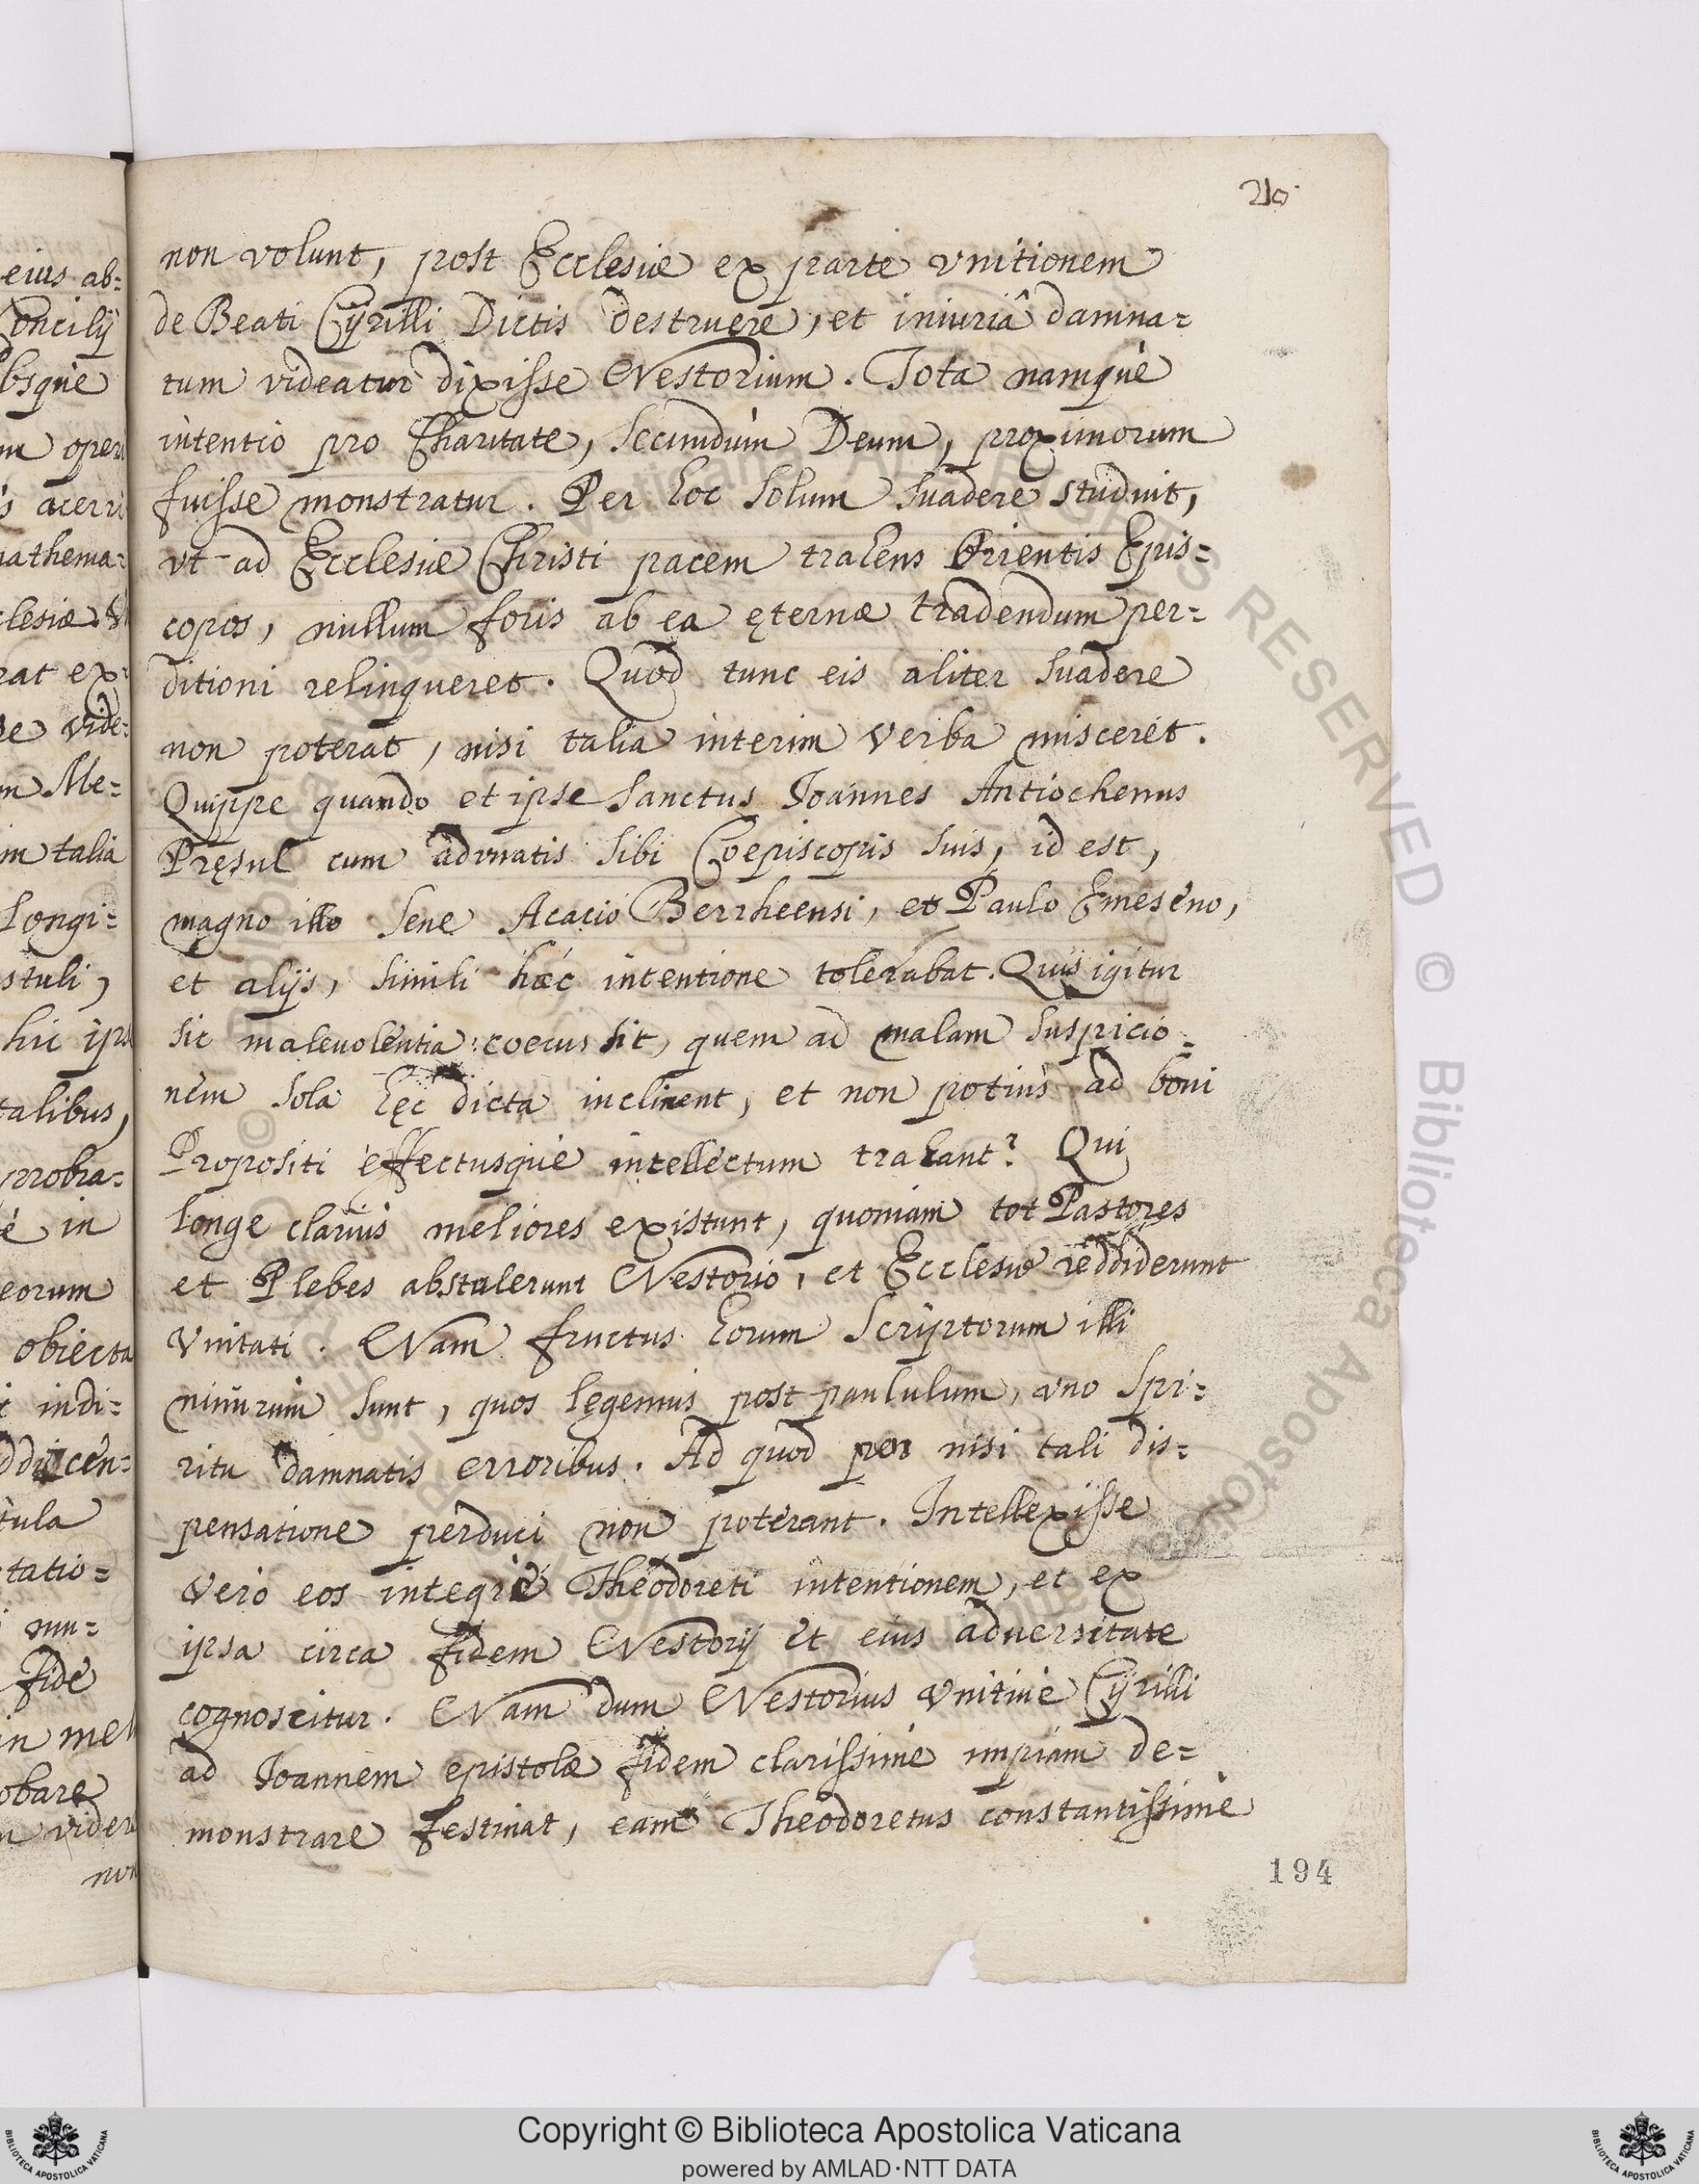 210.
non volunt, post Ecclesiæ ex parte vnitionem
de Beati Cÿrilli Dictis destruere, et iniuriâ damna=
tum videatur dixisse Nestorium. Tota namque
intentio pro Charitate, secundum Deum, proximorum
fuisse monstratur. Per hoc solum suadere studuit,
vt ad Ecclesiæ Christi pacem trahens Orientis Epis=
copos, nullum foris ab ea ęternæ tradendum per=
ditioni relinqueret. Quod tunc eis aliter suadere
non poterat, nisi talia interim verba misceret.
Quippe quando et ipse Sanctus Ioannes Antiochenus
Pręsul cum advnatis sibi Coepiscopis suis, id est,
magno illo sene Acacio Berrheensi, et Paulo Emeseno,
et alijs, simili hæc intentione tolerabat. Quis igitur
sic maleuolentia coecus sit, quem ad malam suspicio=
nem sola hęc dicta inclinent, et non potius ad boni
Propositi effectusque intellectum trahant? Qui
longe clarius meliores existunt, quoniam tot Pastores
et Plebes abstulerunt Nestorio, et Ecclesiæ reddiderunt
vnitati. Nam fructus horum Scriptorum illi
nimirum sunt, quos lęgemus post paululum, vno Spi=
ritu damnatis erroribus. Ad quod nisi tali dis=
pensatione perduci non poterant. Intellexisse
vero eos integre Theodoreti intentionem, et ex
ipsa circa fidem Nestorij et eius aduersitate
cognoscitur. Nam dum Nestorius vnitiuè Cÿrilli
ad Ioannem epistolæ fidem clarissime impiam de=
monstrare festinat, eam Theodoretus constantissime
194
eius ab=
Concilij
absque
acerri
nathema=
clesiæ
rat ex=
vide=
Me=
talia
Longi=
stuli,
hic
talibus,
probra=
è in
eorum
obiecta
indi=
tula
tatio=
mu=
fide
in
obare
non
© Biblioteca Apostolica Vaticana ALL RIGHTS RESERVED
Copyright © Biblioteca Apostolica Vaticana
powered by AMLAD·NTT DATA
BIBLIOTECA APOSTOLICA VATICANA
BIBLIOTECA APOSTOLICA VATICANA